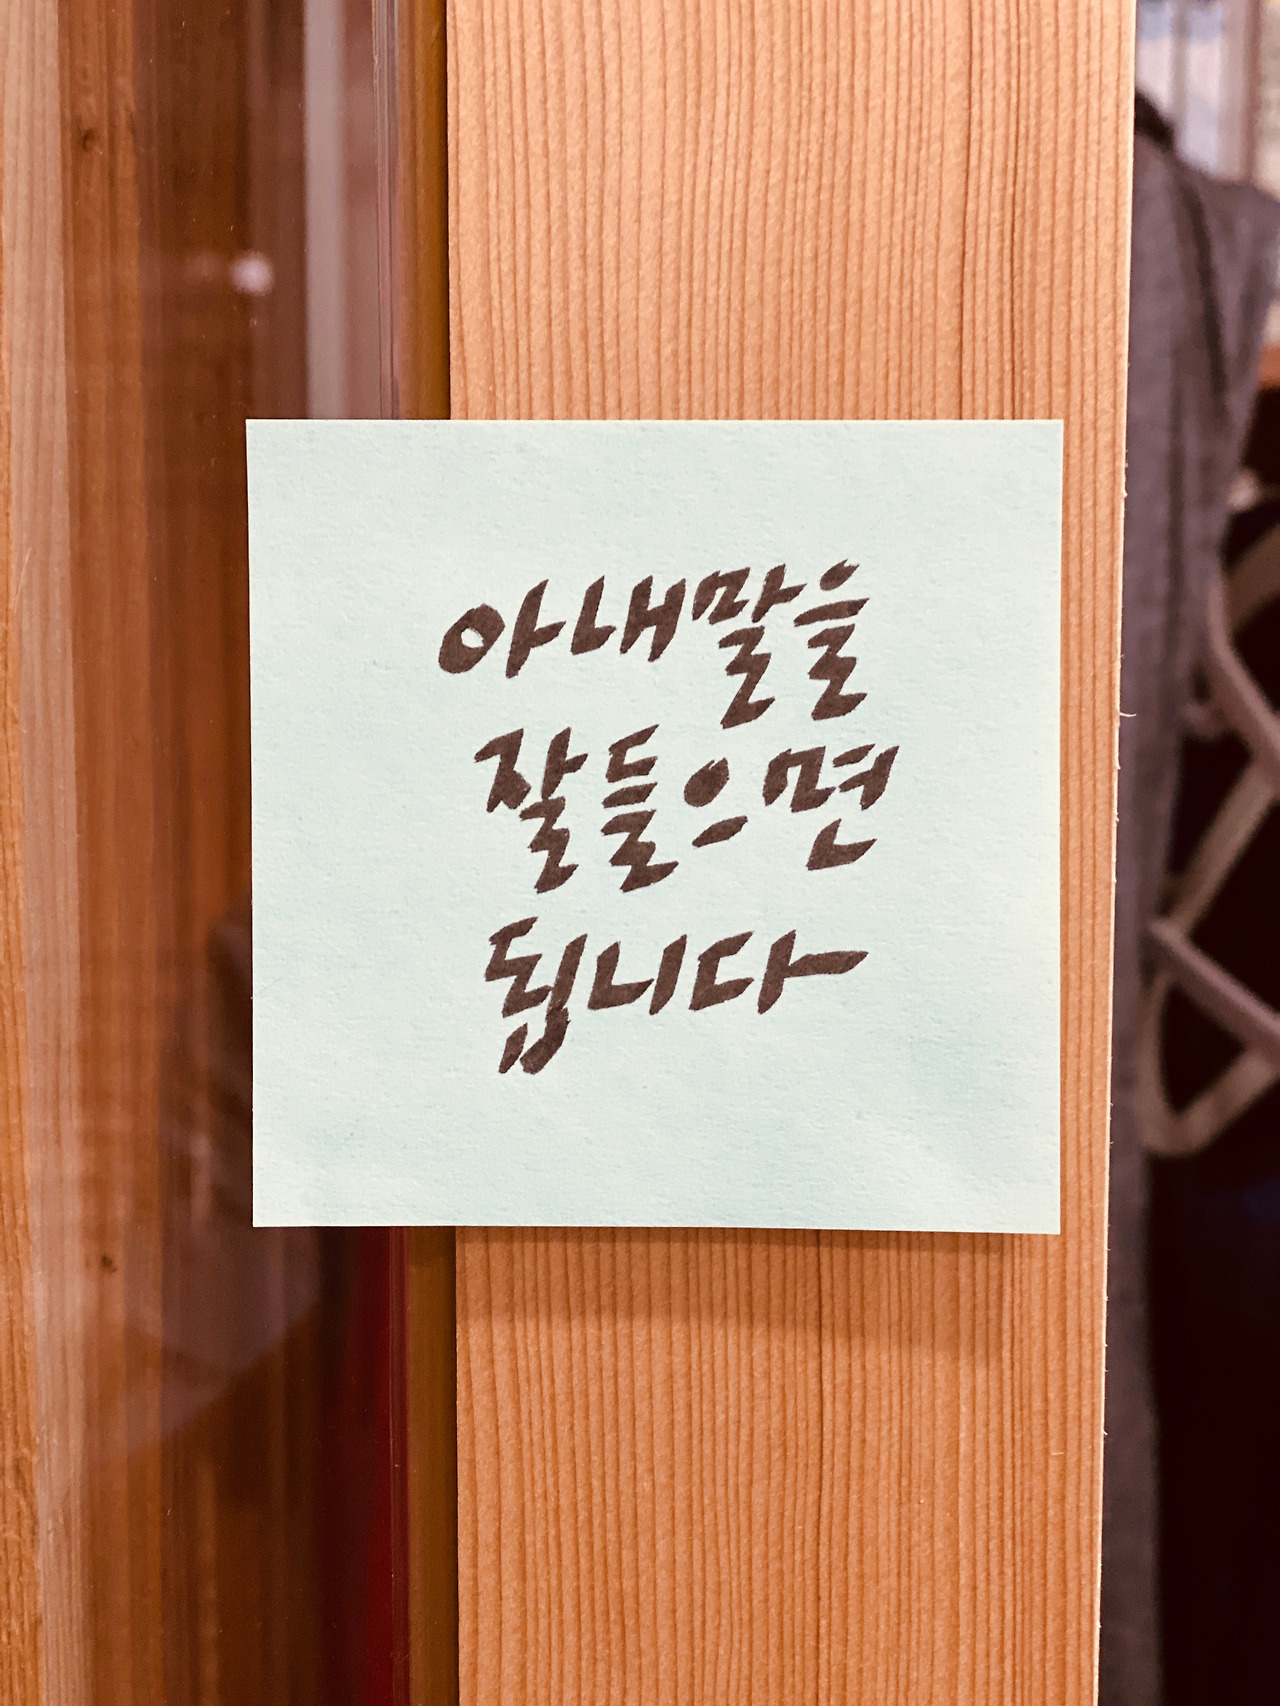 아내말을
잘들으면
됩니다